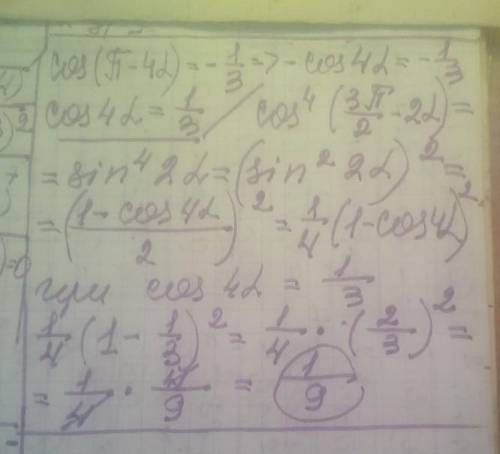 cos(π-4α)=-1/3=>-cos4α=-1/3
cos4α=1/3 cos⁴(3π/2-2α)=
=sin⁴2α=(sin²2α)²=
=((1-cos4α)/2)²=1/4(1-cos4α)²
при cos4α=1/3
1/4(1-1/3)²=1/4·(2/3)²=
=1/4·4/9=1/9